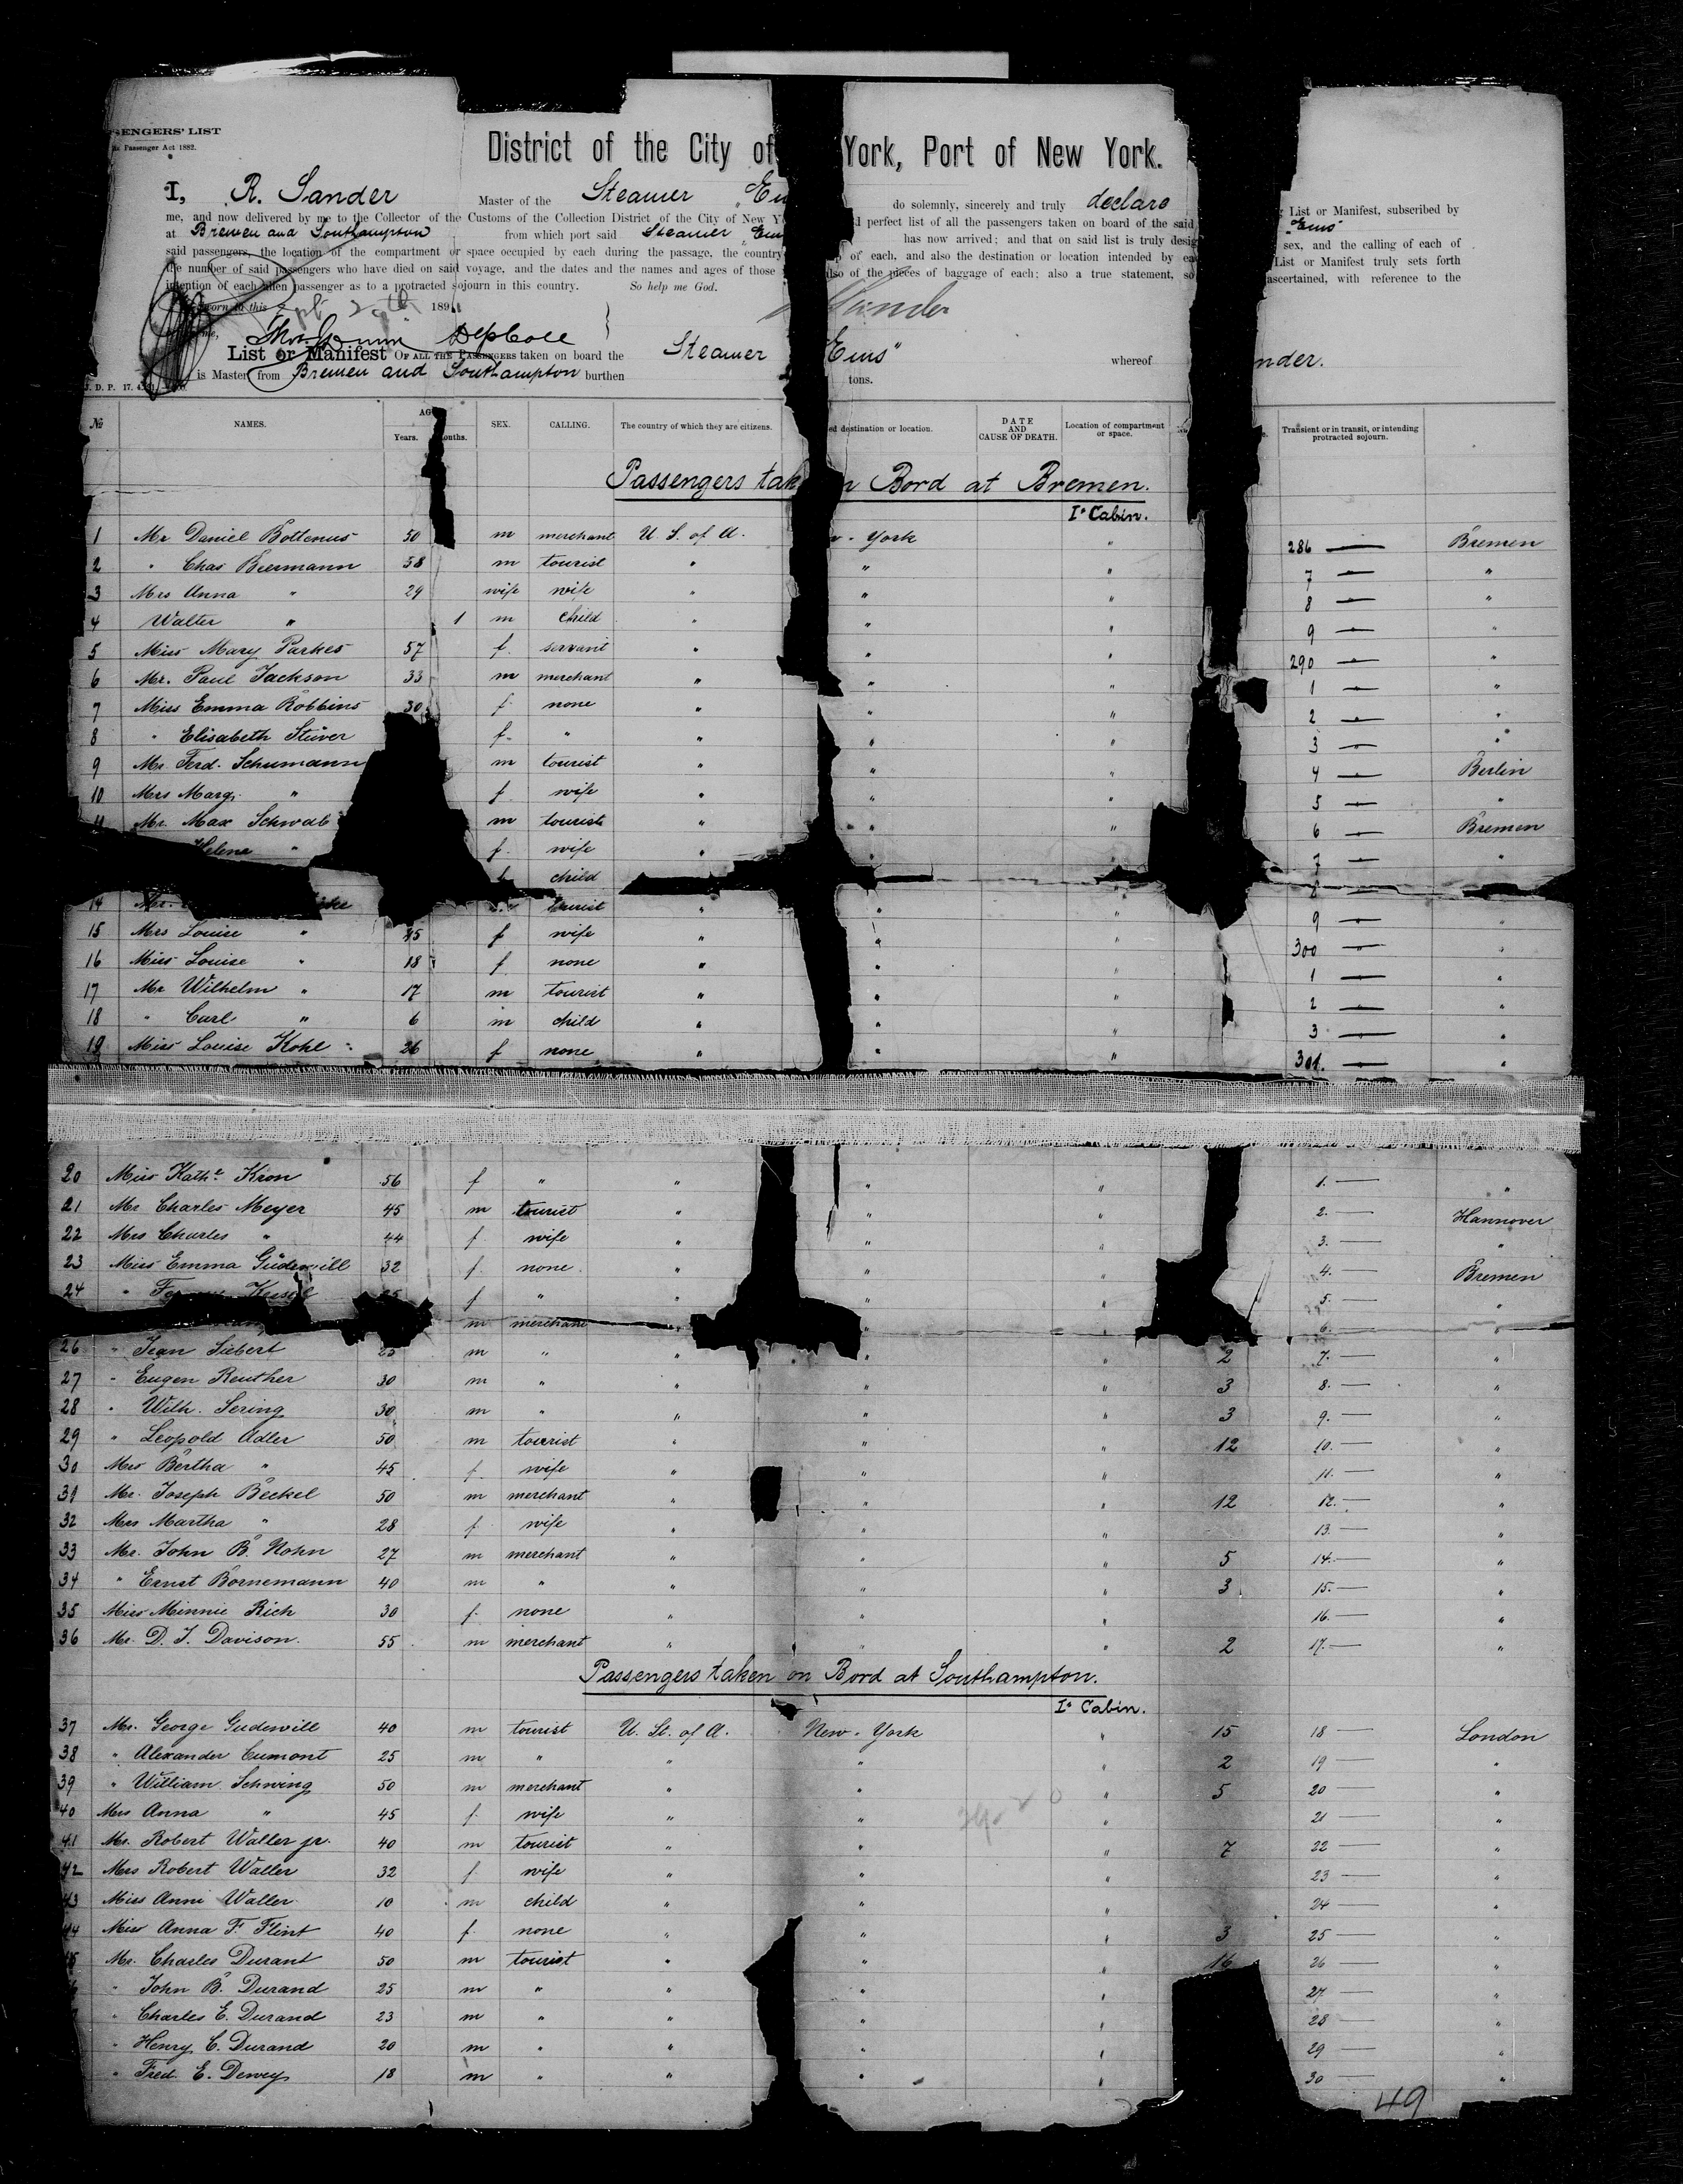 SENGERS' LIST
Passenger Act 1882.
District of the City of York, Port of New York.
I, R. Sander Master of the Steamer „Em do solemnly, sincerely and truly declare List or Manifest, subscribed by
me, and now delivered by me to the Collector of the Customs of the Collection District of the City of New Y d perfect list of all the passengers taken on board of the said „Ems"
at Bremen and Southampton from which port said Steamer „Em has now arrived; and that on said list is truly desig sex, and the calling of each of
said passengers, the location of the compartment or space occupied by each during the passage, the country p of each, and also the destination or location intended by ea List or Manifest truly sets forth
the number of said passengers who have died on said voyage, and the dates and the names and ages of those also of the pieces of baggage of each; also a true statement, so ascertained, with reference to the
intention of each alien passenger as to a protracted sojourn in this country. So help me God.
Sworn to this 189 Sander
Dep Coll
List or Manifest OF ALL THE PASSENGERS taken on board the Steamer Ems" whereof nder.
is Master from Bremen and Southampton burthen tons.
D. P. 17.
№ NAMES. AG Years. onths. SEX. CALLING. The country of which they are citizens. ed destination or location. DATE AND CAUSE OF DEATH. Location of compartment or space. Transient or in transit, or intending protracted sojourn.
Passengers tak n Bord at Bremen.
I. Cabin.
1 Mr Daniel Boltenus 50 m merchant U. S. of A. - York " 286 — Bremen
2 " Chas Biermann 58 m tourist " " " 7 — "
3 Mrs Anna " 29 wife wife " " " 8 — "
4 Walter " 1 m child " " " 9 — "
5 Miss Mary Parkes 57 f. servant " " " 290 — "
6 Mr. Paul Jackson 33 m merchant " " " 1 — "
7 Miss Emma Robbins 30 f none " " " 2 — "
8 " Elisabeth Stüver f. " " " " 3 — "
9 Mr. Ferd. Schumann m tourist " " " 4 — Berlin
10 Mrs Marg. " f. wife " " " 5 — "
11 Mr. Max Schwab m tourist " " " 6 — Bremen
Helene " f. wife " " 7 — "
f child 8 —
14 Mr. tourist " " " 9 — "
15 Mrs Louise " 45 f wife " " " 300 — "
16 Miss Louise " 18 f none " " 1 — "
17 Mr Wilhelm " 17 m tourist " " " 2 — "
18 " Carl " 6 m child " " " 3 — "
19 Miss Louise Kohl 26 f none " " " 304. — "
20 Miss Kathe Kron 56 f " " " " 1. — "
21 Mr Charles Meyer 45 m tourist " " " 2. — Hannover
22 Mrs Charles " 44 f. wife " " " 3. — "
23 Miss Emma Güdewill 32 f. none " " " 4. — Bremen
24 " f " " " " 5. — "
m merchant " " 6. — "
26 " Jean Siebert m " " " " 2 7. — "
27 " Eugen Reuther 30 m " " " " 3 8. — "
28 " Wilh. Sering 30 m " " " " 3 9. — "
29 " Leopold Adler 50 m tourist " " " 12 10. — "
30 Mrs Bertha " 45 f. wife " " " 11. — "
31 Mr. Joseph Beckel 50 m merchant " " " 12 12. — "
32 Mrs Martha " 28 f wife " " " 13. — "
33 Mr. John B. Nohn 27 m merchant " " " 5 14. — "
34 " Ernst Bornemann 40 m " " " " 3 15. — "
35 Miss Minnie Rich 30 f. none " " " 16. — "
36 Mr. D. J. Davison. 55 m merchant " " " 2 17. — "
Passengers taken on Bord at Southampton.
I. Cabin.
37 Mr. George Gudewill 40 m tourist U. St. of A. New-York " 15 18 — London
38 " Alexander Cumont 25 m " " " " 2 19 — "
39 " William Schwing 50 m merchant " " " 5 20 — "
40 Mrs Anna " 45 f. wife " " " 21 — "
41 Mr. Robert Waller jr. 40 m tourist " " " 7 22 — "
42 Mrs Robert Waller 32 f wife " " " 23 — "
43 Miss Anni Waller 10 m child " " " 24 — "
44 Miss Anna F. Flint 40 f. none " " " 3 25 — "
45 Mr. Charles Durant 50 m tourist " " " 16 26 — "
" John B. Durand 25 m " " " " 27 — "
" Charles E. Durand 23 m " " " " 28 — "
" Henry C. Durand 20 m " " " " 29 — "
" Fred. E. Dewey 18 m " " " " 30 — "
49